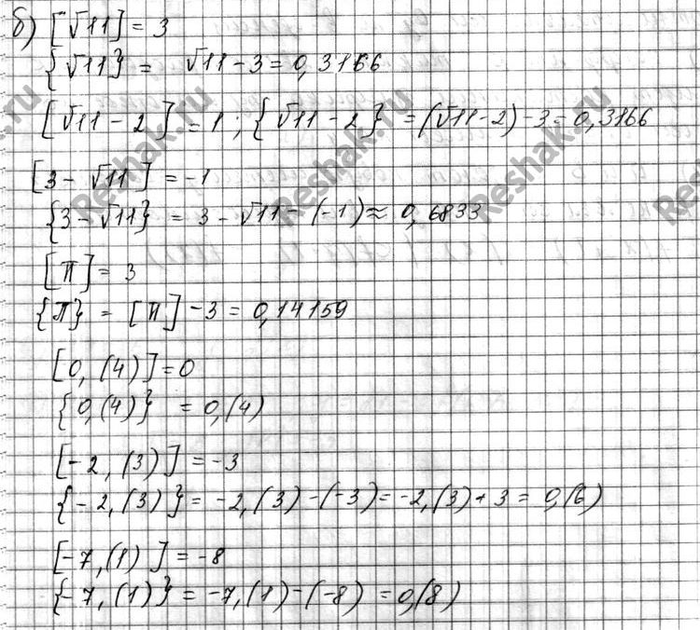 б) [√11] = 3
{√11} = √11 - 3 = 0,3166
[√11 - 2] = 1 ; {√11 - 2} = (√11 - 2) - 3 = 0,3166
[3 - √11] = -1
{3 - √11} = 3 - √11 - (-1) ≈ 0,6833
[π] = 3
{π} = [π] - 3 = 0,14159
[0,(4)] = 0
{0,(4)} = 0,(4)
[-2,(3)] = -3
{-2,(3)} = -2,(3) - (-3) = -2,(3) + 3 = 0,(6)
[-7,(1)] = -8
{-7,(1)} = -7,(1) - (-8) = 0,(8)
Reshak.ru
Reshak.ru
Reshak.ru